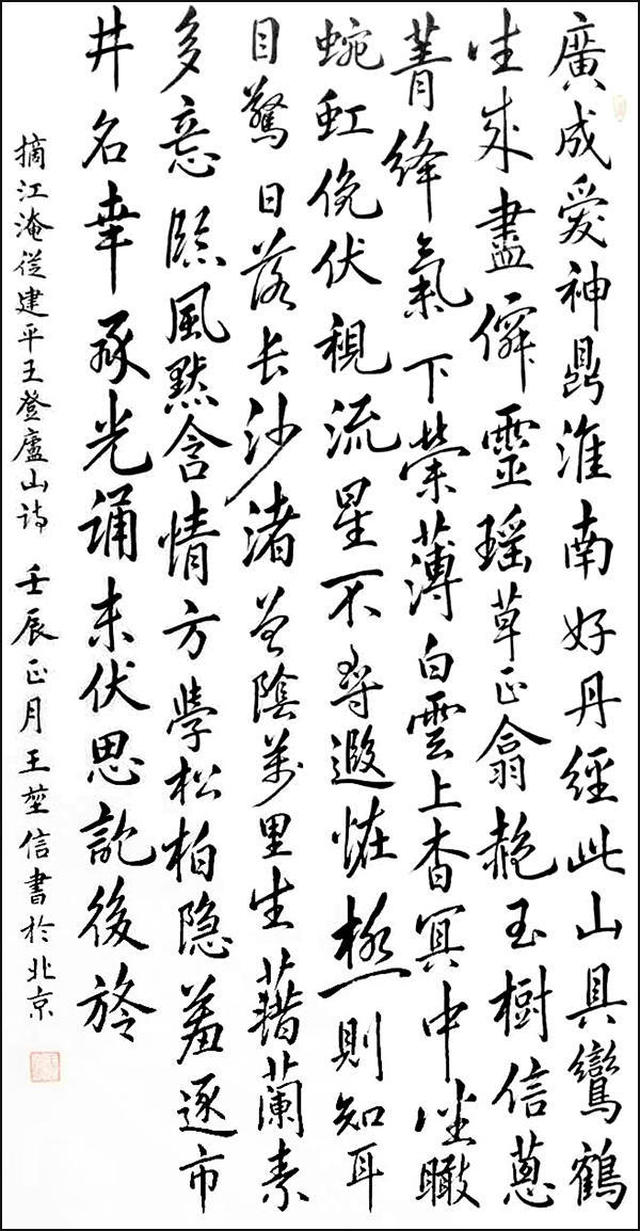 廣成愛神鼎淮南好丹經此山具鸞鶴
往來盡僊靈瑶草正翕赩玉樹信蔥
菁絳氣下縈薄白雲上杳冥中坐瞰
蜿虹俛伏視流星不尋遐怪極則知耳
目驚日落長沙渚曾陰萬里生藉蘭素
多意臨風默含情方學松柏隐羞逐市
井名幸承光誦末伏思託後旍
摘江淹從建平王登廬山詩 壬辰正月王堃信書於北京